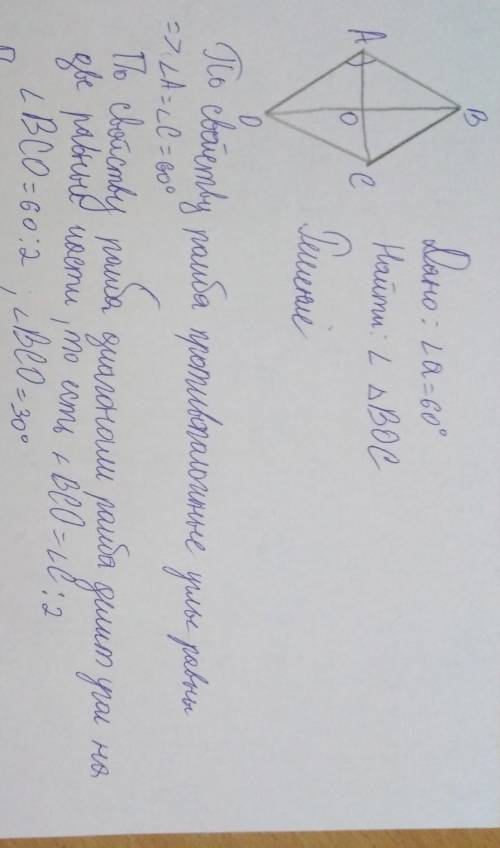 A
B
C
D
O
Дано: ∠a=60°
Найти: ∠ △BOC
Решение
По свойству ромба противоположные углы равны
=> ∠A=∠C=60°
По свойству ромба диагонали ромба делит угол на
две равные части, то есть ∠BCO=∠C:2
∠BCO=60:2, ∠BCO=30°